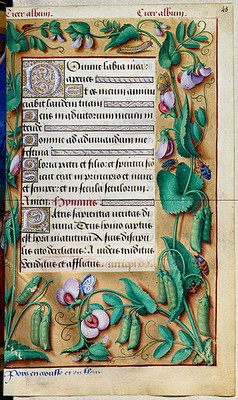 Cicer album. Cicer album. 48
Domine labia mea
aperies
Et os meum annun
ciabit laudem tuam
Deus in adiutorium meum in
tende
Domine ad adiuuandum me
festina
Gloria patri et filio et spiritui sco
Sicut erat in principio et nunc
et semper et in secula seculorum.
Amen. Hymnus.
Patris sapientia veritas di
uina. Deus homo captus
est hora matutina. A suis discipu
lis cito derelictus. A iudeis traditus
Venditus et afflictus.
Poys en gousse et en fleur